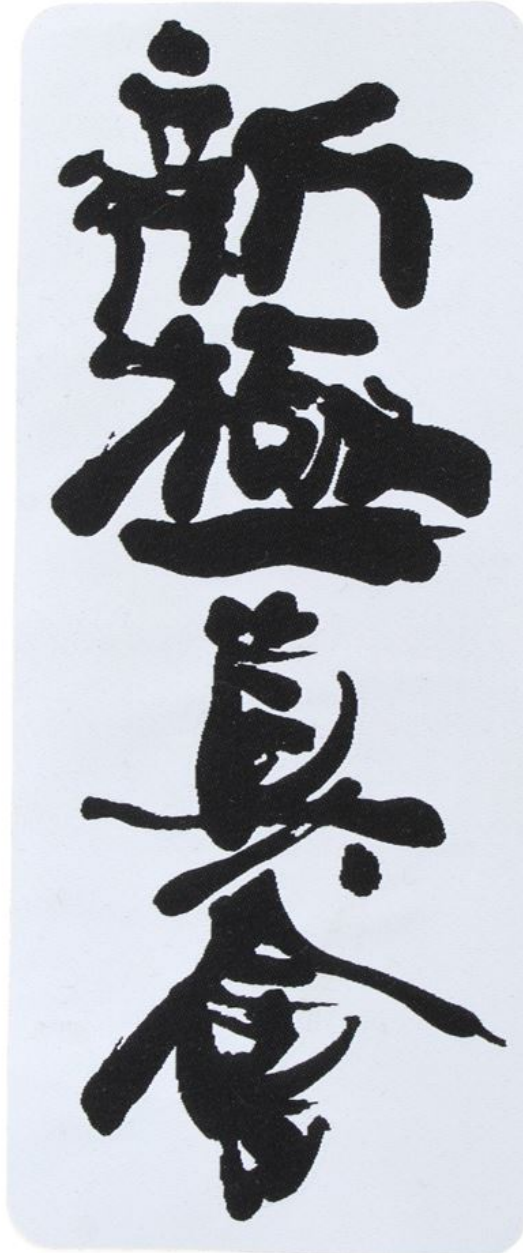 新極真會